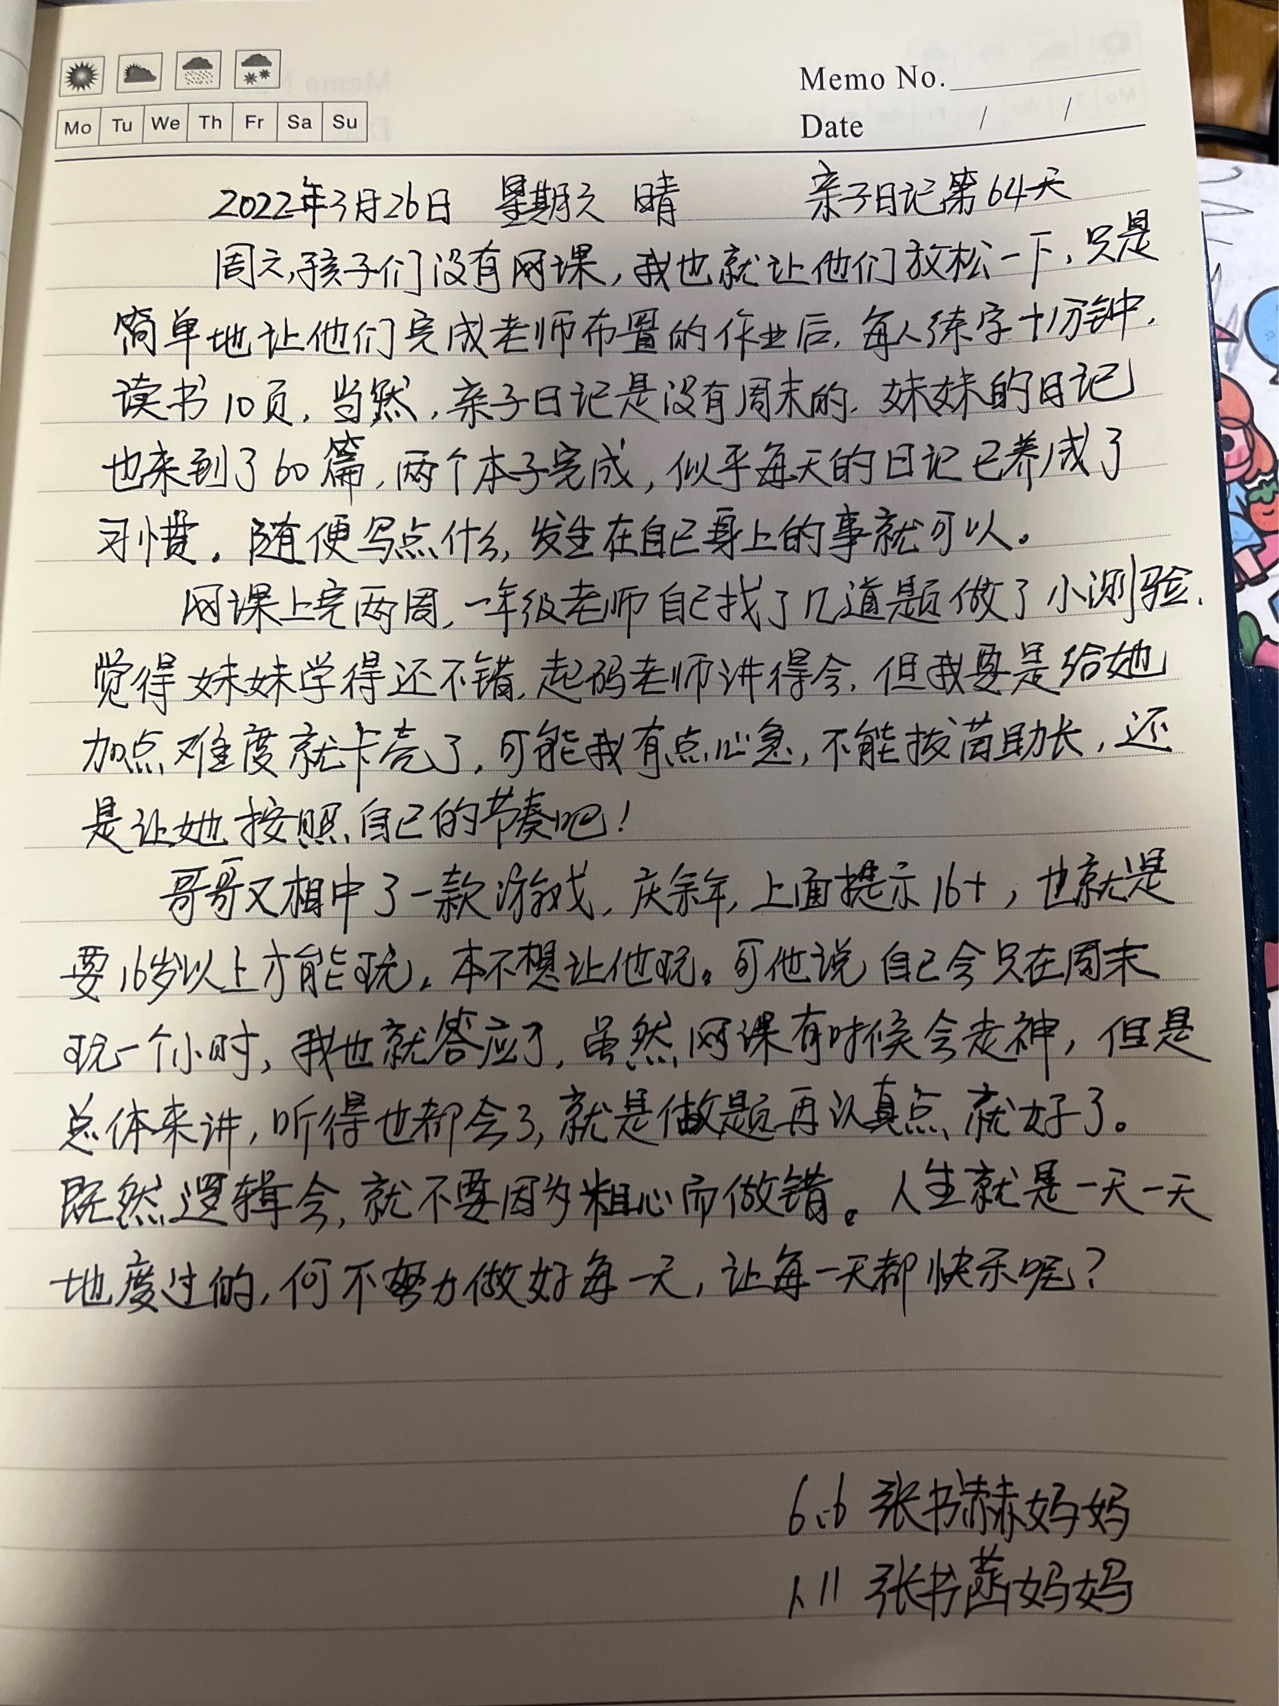 Memo No.
Mo Tu We Th Fr Sa Su
Date / /
2022年3月26日 星期六 晴 亲子日记第64天
周六,孩子们没有网课,我也就让他们放松一下,只是
简单地让他们完成老师布置的作业后,每人练字十分钟,
读书10页,当然,亲子日记是没有周末的,妹妹的日记
也来到了60篇,两个本子完成,似乎每天的日记已养成了
习惯。随便写点什么,发生在自己身上的事就可以。
网课上完两周,一年级老师自己找了几道题做了小测验,
觉得妹妹学得还不错,起码老师讲得会,但我要是给她
加点难度就卡壳了,可能我有点心急,不能拔苗助长,还
是让她按照自己的节奏吧!
哥哥又相中了一款游戏,庆余年,上面提示16+,也就是
要16岁以上才能玩,本不想让他玩。可他说自己会只在周末
玩一个小时,我也就答应了,虽然网课有时候会走神,但是
总体来讲,听得也都会了,就是做题再认真点就好了。
既然逻辑会,就不要因为粗心而做错。人生就是一天一天
地度过的,何不努力做好每一天,让每一天都快乐呢?
6.6 张书赫妈妈
1.11 张书菡妈妈